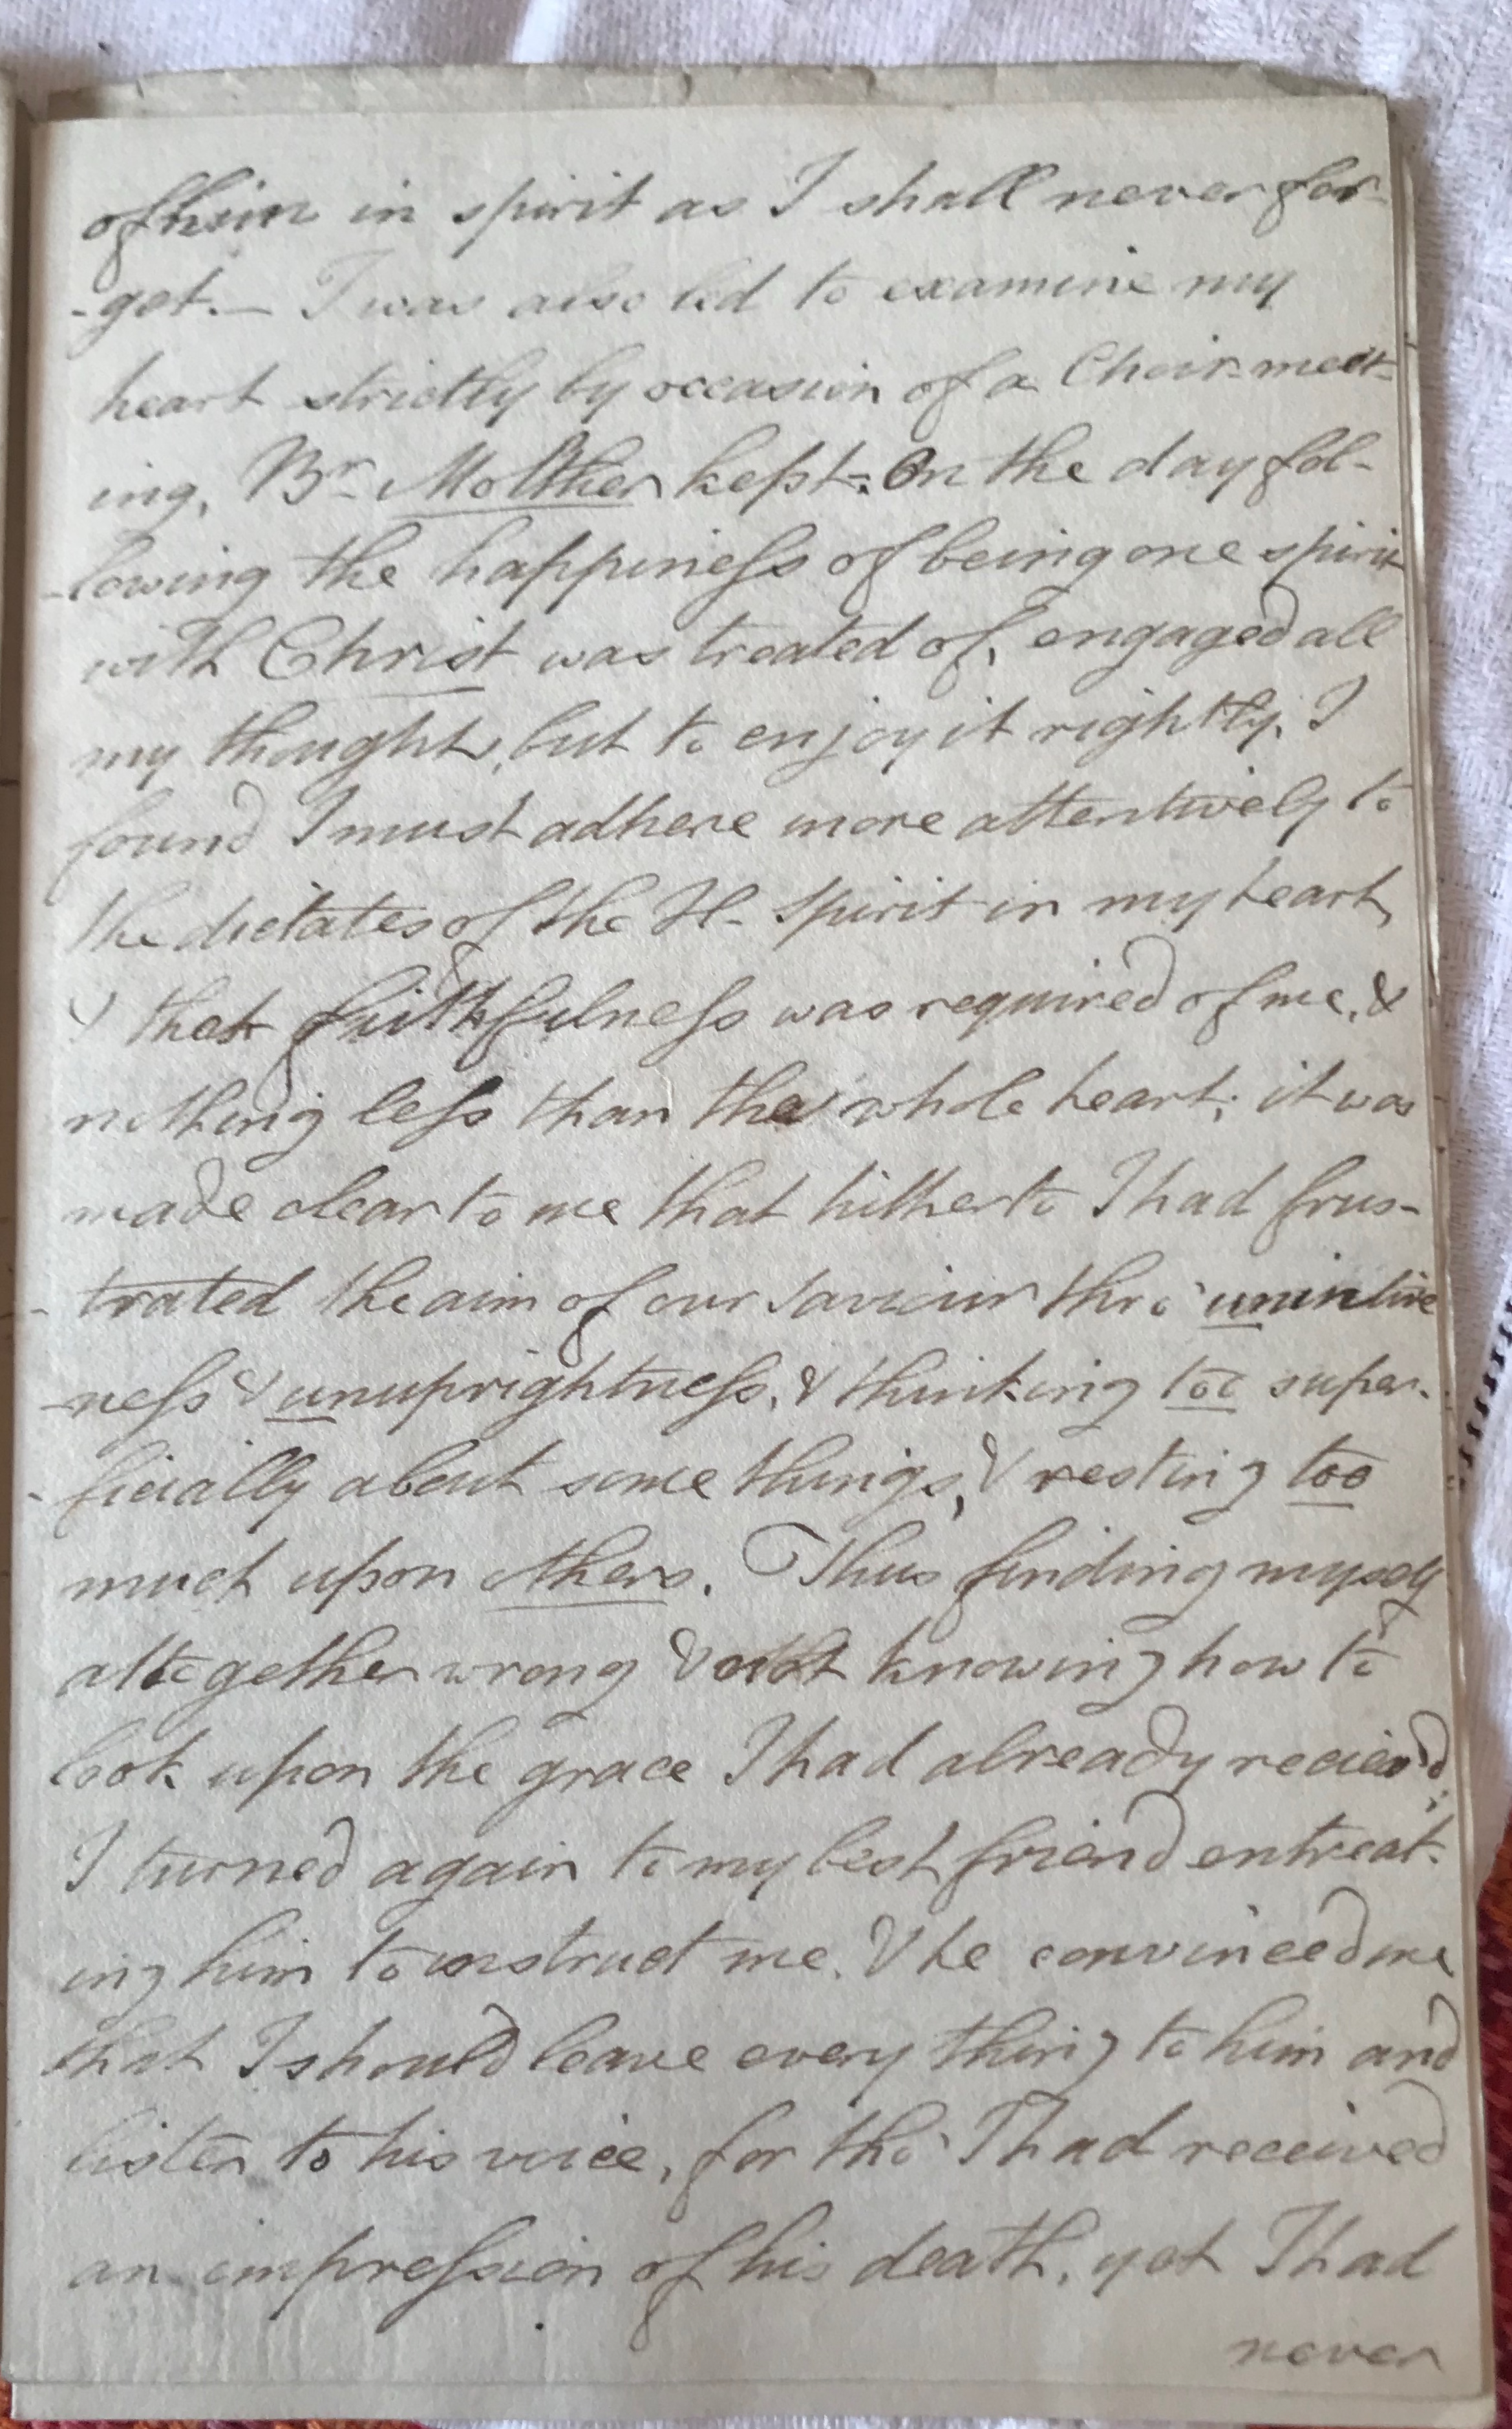 of him in spirit as I shall never for-
-get. — I was also led to examine my
heart strictly by occasion of a Choir-meet-
ing, Br. Molther kept. On the day fol-
-lowing the happiness of being one spirit
with Christ was treated of, engaged all
my thought, but to enjoy it rightly, I
found I must adhere more attentively to
the dictates of the H- Spirit in my heart,
& that faithfulness was required of me, &
nothing less than the whole heart; it was
made clear to me that hitherto I had frus-
-trated the aim of our Saviour thro'
-ness & unuprightness, & thinking too super-
-ficially about some things, & resting too
much upon others. Thus finding myself
altogether wrong & not knowing how to
look upon the grace I had already reciev'd;
I turned again to my best friend entreat-
ing him to instruct me, & he convinced me
that I should leave every thing to him and
listen to his voice, for tho' I had received
an impression of his death, yet I had
never